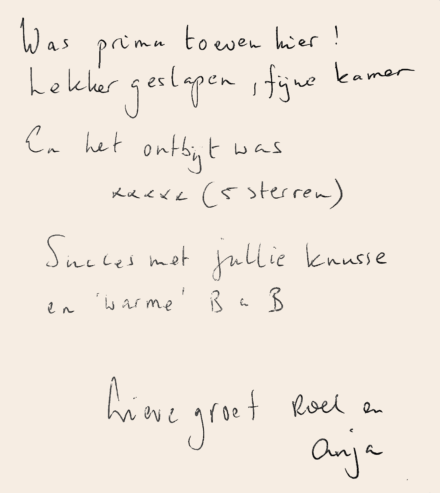 Was prima toeven hier!
Lekker geslapen, fijne kamer
En het ontbijt was
xxxxx (5 sterren)
Succes met jullie knusse
en 'warme' B a B
Lieve groet Roel en
Anja